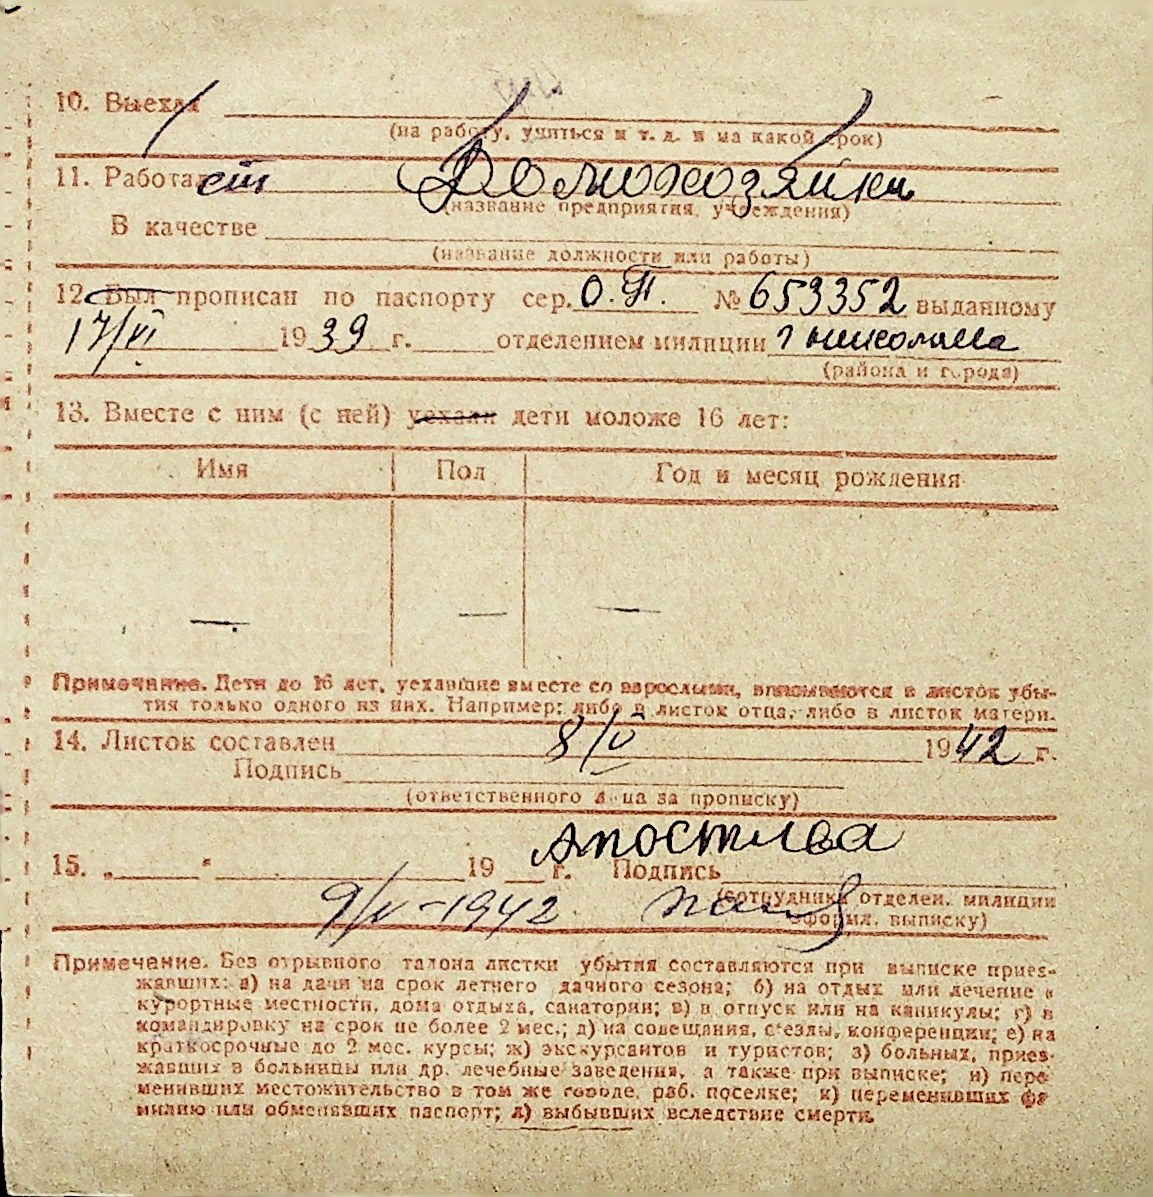 10. Выехал
(на работу, учиться и т. д. и на какой срок)
11. Работает Домохозяйки
(название предприятия, учреждения)
В качестве
(название должности или работы)
12. Был прописан по паспорту сер. О.П. № 653352 выданному
17/VI 1939 г. отделением милиции г Николаева
(района и города)
13. Вместе с ним (с ней) уехали дети моложе 16 лет:
Имя Пол Год и месяц рождения
— — —
Примечание. Дети до 16 лет, уехавшие вместе со взрослыми, вписываются в листок убы-
тия только одного из них. Например: либо в листок отца, либо в листок матери.
14. Листок составлен 8/V 1942 г.
Подпись
(ответственного лица за прописку)
Апостлва
15. „ “ 19 г. Подпись
9/V-1942
(сотрудника отделен. милиции
оформл. выписку)
Примечание. Без отрывного талона листки убытия составляются при выписке приез-
жавших: а) на дачи на срок летнего дачного сезона; б) на отдых или лечение в
курортные местности, дома отдыха, санатории; в) в отпуск или на каникулы; г) в
командировку на срок не более 2 мес.; д) на совещания, съезды, конференции; е) на
краткосрочные до 2 мес. курсы; ж) экскурсантов и туристов; з) больных, приез-
жавших в больницы или др. лечебные заведения, а также при выписке; и) пере
менивших местожительство в том же городе, раб. поселке; к) переменивших фа
милию или обменявших паспорт; л) выбывших вследствие смерти.